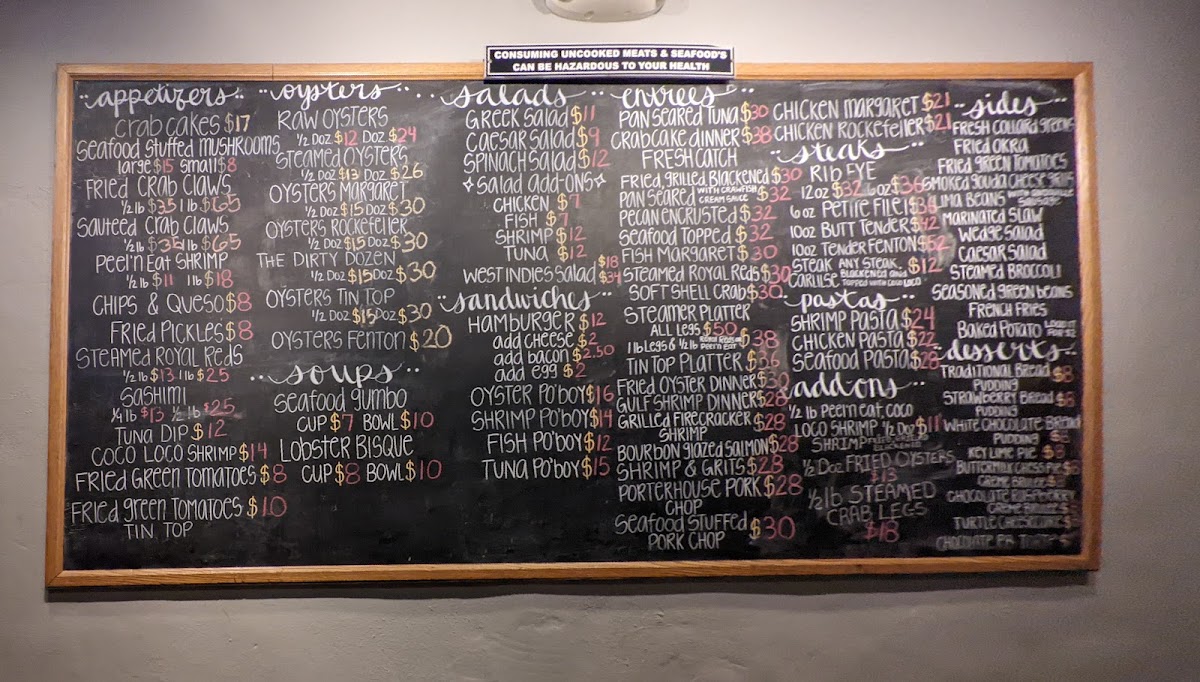 CONSUMING UNCOOKED MEATS & SEAFOOD'S
CAN BE HAZARDOUS TO YOUR HEALTH
appetizers
Crab Cakes $17
Seafood Stuffed Mushrooms
large $15 small $8
Fried Crab Claws
1/2 lb $35 1 lb $65
Sauteed Crab Claws
1/2 lb $35 1 lb $65
Peel'n Eat Shrimp
1/2 lb $11 1 lb $18
Chips & Queso $8
Fried Pickles $8
Steamed Royal Reds
1/2 lb $13 1 lb $25
Sashimi
1/4 lb $13 1/2 lb $25
Tuna Dip $12
Coco Loco Shrimp $14
Fried Green Tomatoes $8
Fried Green Tomatoes $10
Tin Top
oysters
Raw Oysters
1/2 Doz $12 Doz $24
Steamed Oysters
1/2 Doz $13 Doz $26
Oysters Margaret
1/2 Doz $15 Doz $30
Oysters Rockefeller
1/2 Doz $15 Doz $30
The Dirty Dozen
1/2 Doz $15 Doz $30
Oysters Tin Top
1/2 Doz $15 Doz $30
Oysters Fenton $20
soups
Seafood Gumbo
Cup $7 Bowl $10
Lobster Bisque
Cup $8 Bowl $10
salads
Greek Salad $11
Caesar Salad $9
Spinach Salad $12
Salad Add-ons
Chicken $7
Fish $7
Shrimp $12
Tuna $12
West Indies Salad $18 $34
sandwiches
Hamburger $12
add cheese $2
add bacon $2.50
add egg $2
Oyster Po'boy $16
Shrimp Po'boy $14
Fish Po'boy $12
Tuna Po'boy $15
entrees
Pan Seared Tuna $30
Crabcake Dinner $38
Fresh Catch
Fried, Grilled, Blackened $30
Pan Seared with crawfish cream sauce $32
Pecan Encrusted $32
Seafood Topped $32
Fish Margaret $30
Steamed Royal Reds $30
Soft Shell Crab $30
Steamer Platter
All Legs $50
1 lb Legs & 1/2 lb Royal Reds or Peel'n Eat $38
Tin Top Platter $36
Fried Oyster Dinner $30
Gulf Shrimp Dinner $28
Grilled Firecracker $28
Shrimp
Bourbon Glazed Salmon $28
Shrimp & Grits $28
Porterhouse Pork $28
Chop
Seafood Stuffed $30
Pork Chop
Chicken Margaret $21
Chicken Rockefeller $21
steaks
Rib Eye
12oz $32 16oz $36
6oz Petite Filet
10oz Butt Tender $42
10oz Tender Fenton $52
Steak Any Steak, $12
Carlise Blackened and topped with Coco Loco
pastas
Shrimp Pasta $24
Chicken Pasta $22
Seafood Pasta $28
add ons
1/2 lb Peel'n eat, Coco
Loco Shrimp 1/2 Doz $11
Shrimp
1/2 Doz Fried Oysters
$13
1/2 lb Steamed
Crab Legs
$18
sides
Fresh Collard Greens
Fried Okra
Fried Green Tomatoes
Smoked Gouda Cheese Grits
Lima Beans w/ Sausage
Marinated Slaw
Wedge Salad
Caesar Salad
Steamed Broccoli
Seasoned Green Beans
French Fries
Baked Potato Load it for $2
desserts
Traditional Bread $8
Pudding
Strawberry Bread $8
Pudding
White Chocolate Bread
Pudding $8
Key Lime Pie $8
Buttermilk Chess Pie $8
Creme Brulee
Chocolate Raspberry
Creme Brulee
Turtle Cheesecake